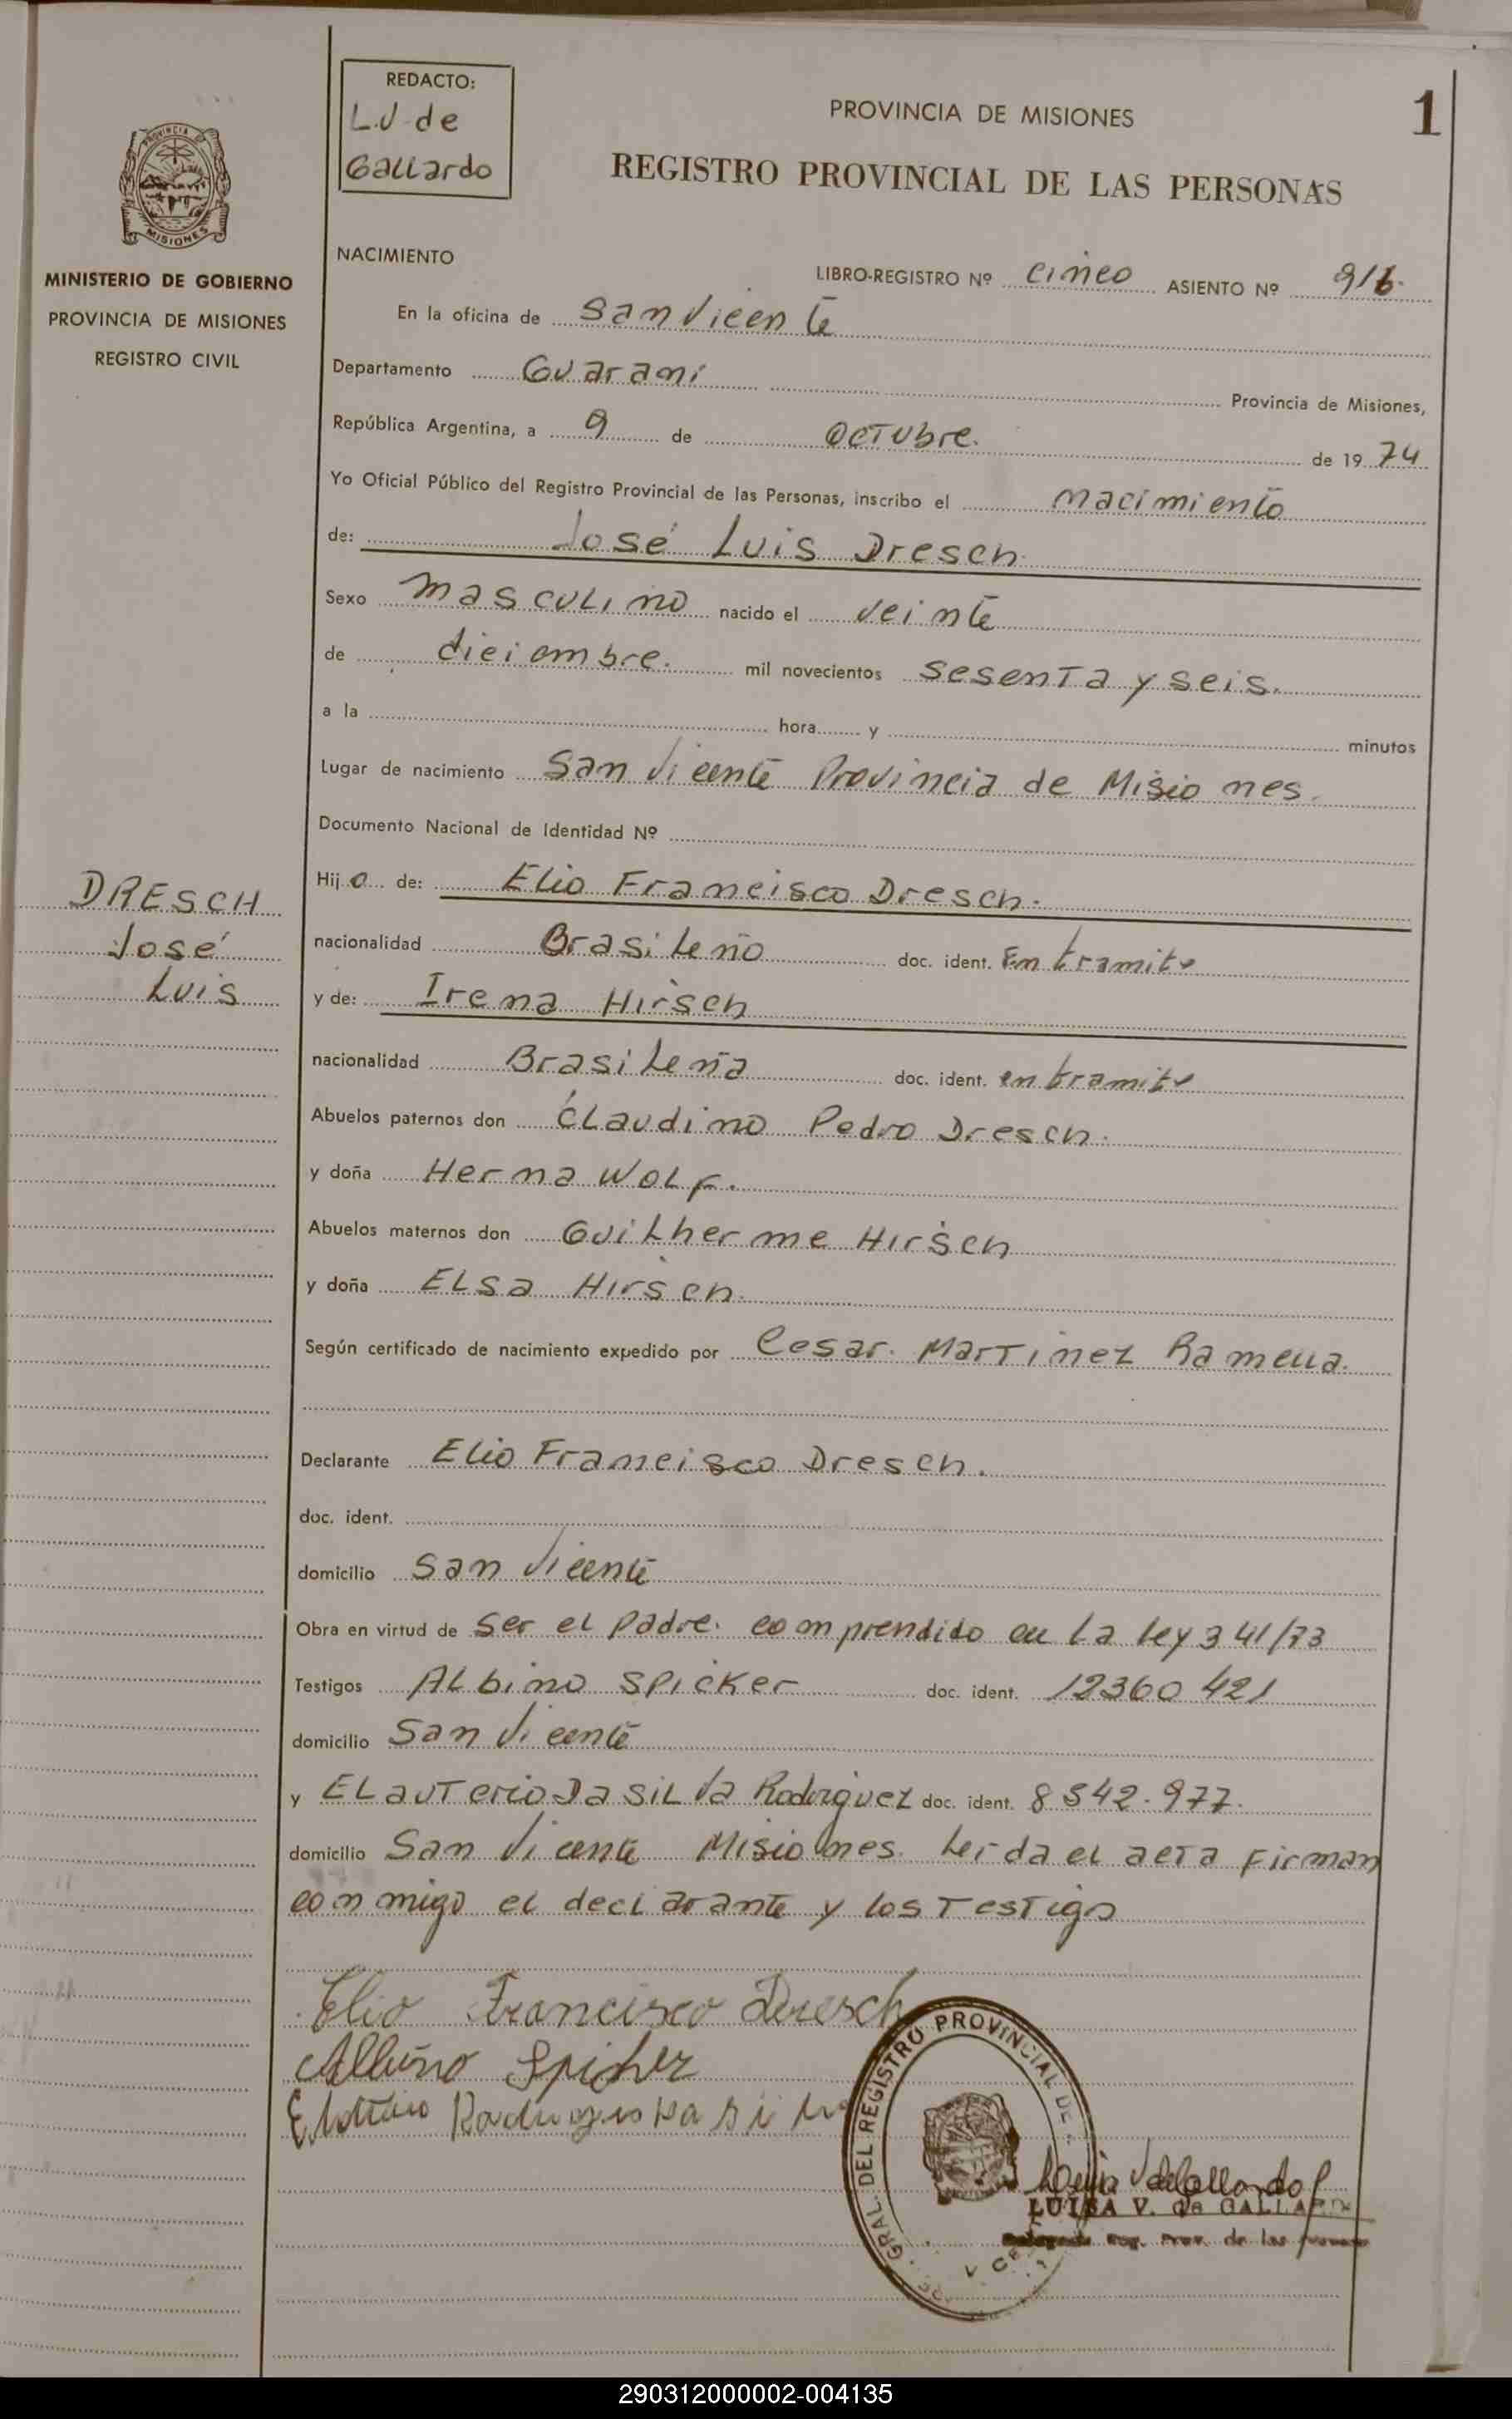 REDACTO:
L.V de
Gallardo
PROVINCIA DE MISIONES
1
REGISTRO PROVINCIAL DE LAS PERSONAS
PROVINCIA
MISIONES
MINISTERIO DE GOBIERNO
PROVINCIA DE MISIONES
REGISTRO CIVIL
NACIMIENTO
LIBRO-REGISTRO Nº cinco ASIENTO Nº 916.
En la oficina de San Vicente
Departamento Guarani Provincia de Misiones,
República Argentina, a 9 de Octubre. de 19 74
Yo Oficial Público del Registro Provincial de las Personas, inscribo el nacimiento
de: José Luis Dresch
Sexo masculino nacido el veinte
de diciembre. mil novecientos sesenta y seis.
a la hora y minutos
Lugar de nacimiento San Vicente Provincia de Misiones.
Documento Nacional de Identidad Nº
Hijo de: Elio Francisco Dresch.
nacionalidad Brasileño doc. ident. En tramite
y de: Irena Hirsch
nacionalidad Brasileña doc. ident. en tramite
Abuelos paternos don Claudino Pedro Dresch.
y doña Herna Wolf.
Abuelos maternos don Guilherme Hirsch
y doña Elsa Hirsch.
Según certificado de nacimiento expedido por Cesar. Martinez Ramella.
Declarante Elio Francisco Dresch.
doc. ident.
domicilio San Vicente
Obra en virtud de ser el padre. comprendido en la ley 341/73
Testigos Albino Spicker doc. ident. 12360421
domicilio San Vicente
y Elauterio Da Silva Rodriguez doc. ident. 8542.977.
domicilio San Vicente Misiones. Leida el acta firman
conmigo el declarante y los testigo
DRESCH
José
Luis
Elio Francisco Dresch
Albino Spicker
REGISTRO PROVINCIAL DE
GRAL. DEL
LUISA V. de GALLARDO
Reg. Prov. de las
290312000002-004135